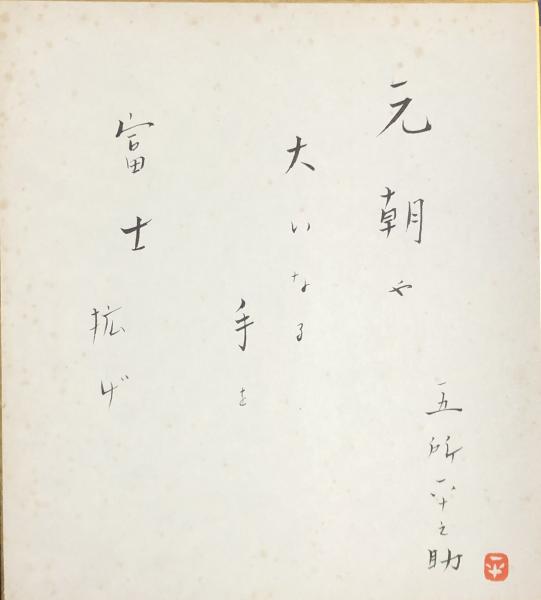 元朝や
大いなる
手を
富士拡げ
五所平之助